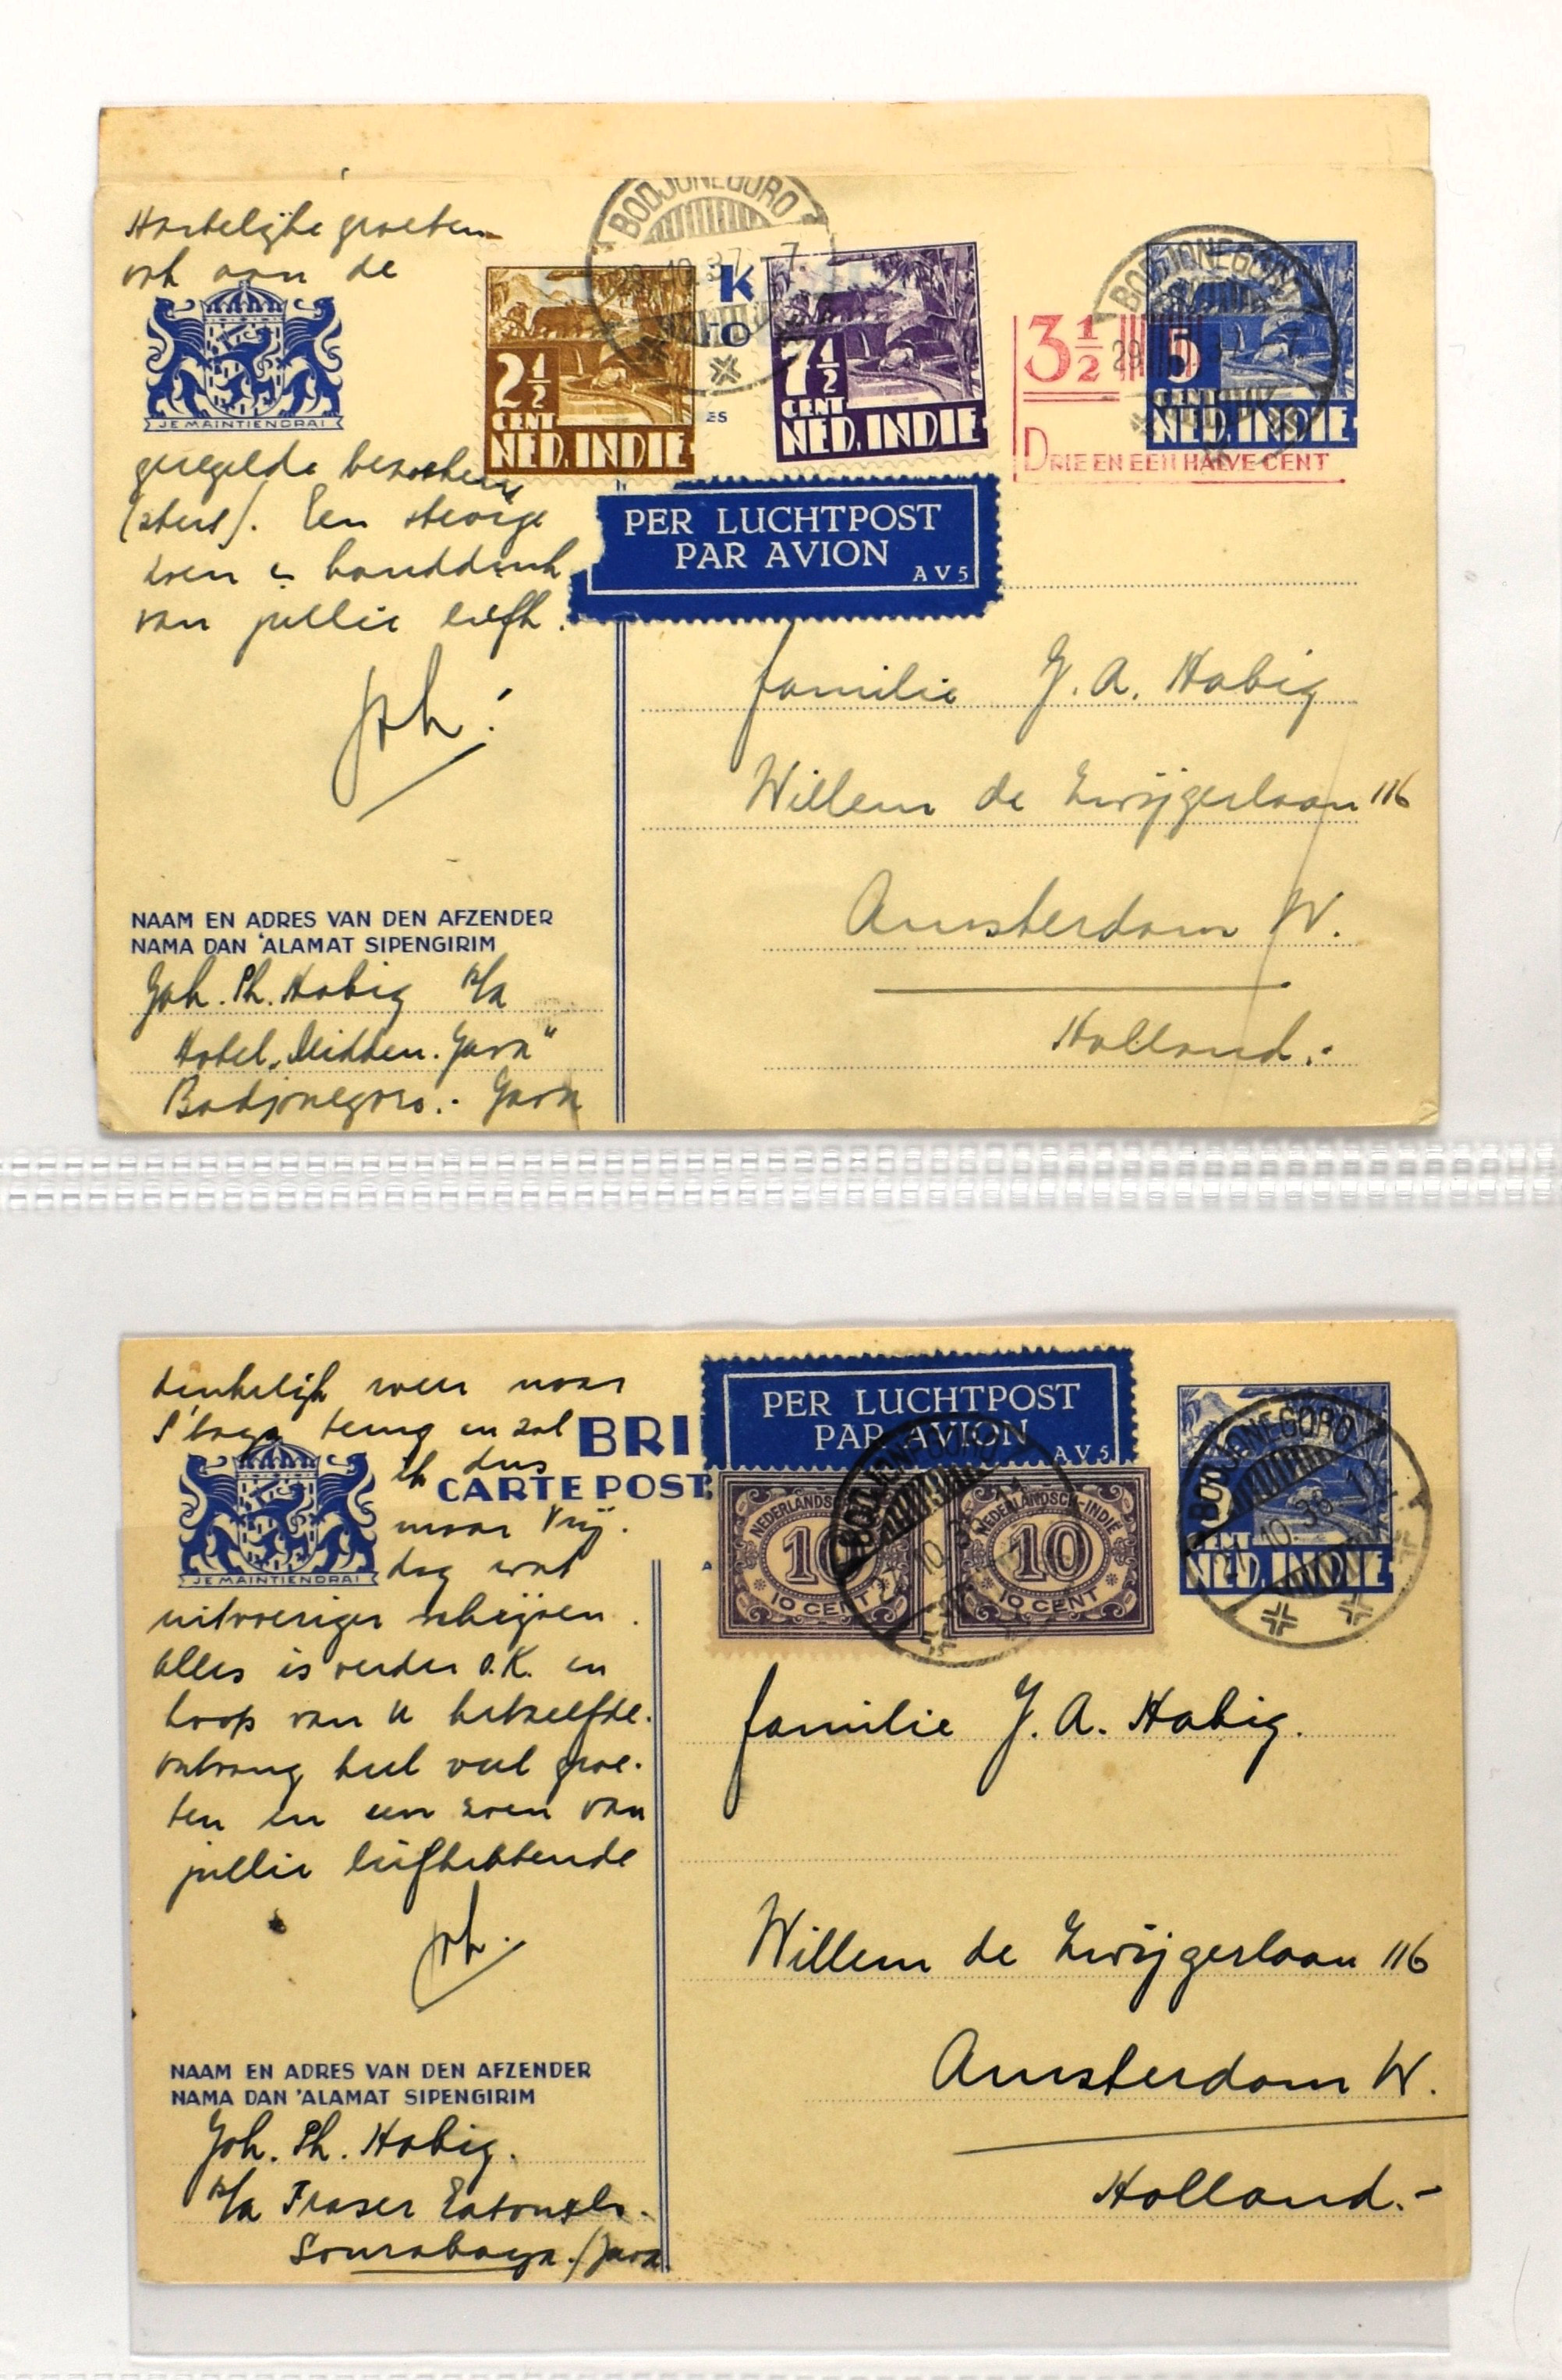 Hartelijke groeten
ook aan de
JE MAINTIENDRAI
geregelde bezoekers
(sters). Een stevige
zoen en handdruk
van jullie liefh.
Joh:
NAAM EN ADRES VAN DEN AFZENDER
NAMA DAN 'ALAMAT SIPENGIRIM
Joh. Ph. Habig p/a
Hotel „Midden-Java"
Bodjonegoro.- Java
BODJONEGORO
29.10.37.-7
K
TO
ES
2½
CENT
NED. INDIE
7½
CENT
NED. INDIE
3½
DRIE EN EEN HALVE CENT
5
CENT
NED. INDIE
BODJONEGORO
29
7
PER LUCHTPOST
PAR AVION
AV5
familie J. A. Habig
Willem de Zwijgerlaan 116
Amsterdam W.
Holland.-
denkelijk weer naar
S'baya terug en zal
ik dus
maar Vrij.
dag wat
JE MAINTIENDRAI
uitvoeriger schrijven.
Alles is verder O.K. en
hoop van U hetzelfde.
Ontvang heel veel groe-
ten en een zoen van
jullie liefhebbende
Joh.
NAAM EN ADRES VAN DEN AFZENDER
NAMA DAN 'ALAMAT SIPENGIRIM
Joh. Ph. Habig.
p/a Fraser Eaton
Sourabaya./Java
BRI
CARTE POST
PER LUCHTPOST
PAR AVION
AV5
NEDERLANDSCH
10
10 CENT
NEDERLANDSCH-INDIE
10
10 CENT
5
CENT
NED. INDIE
BODJONEGORO
10.38
familie J. A. Habig.
Willem de Zwijgerlaan 116
Amsterdam W.
Holland.-